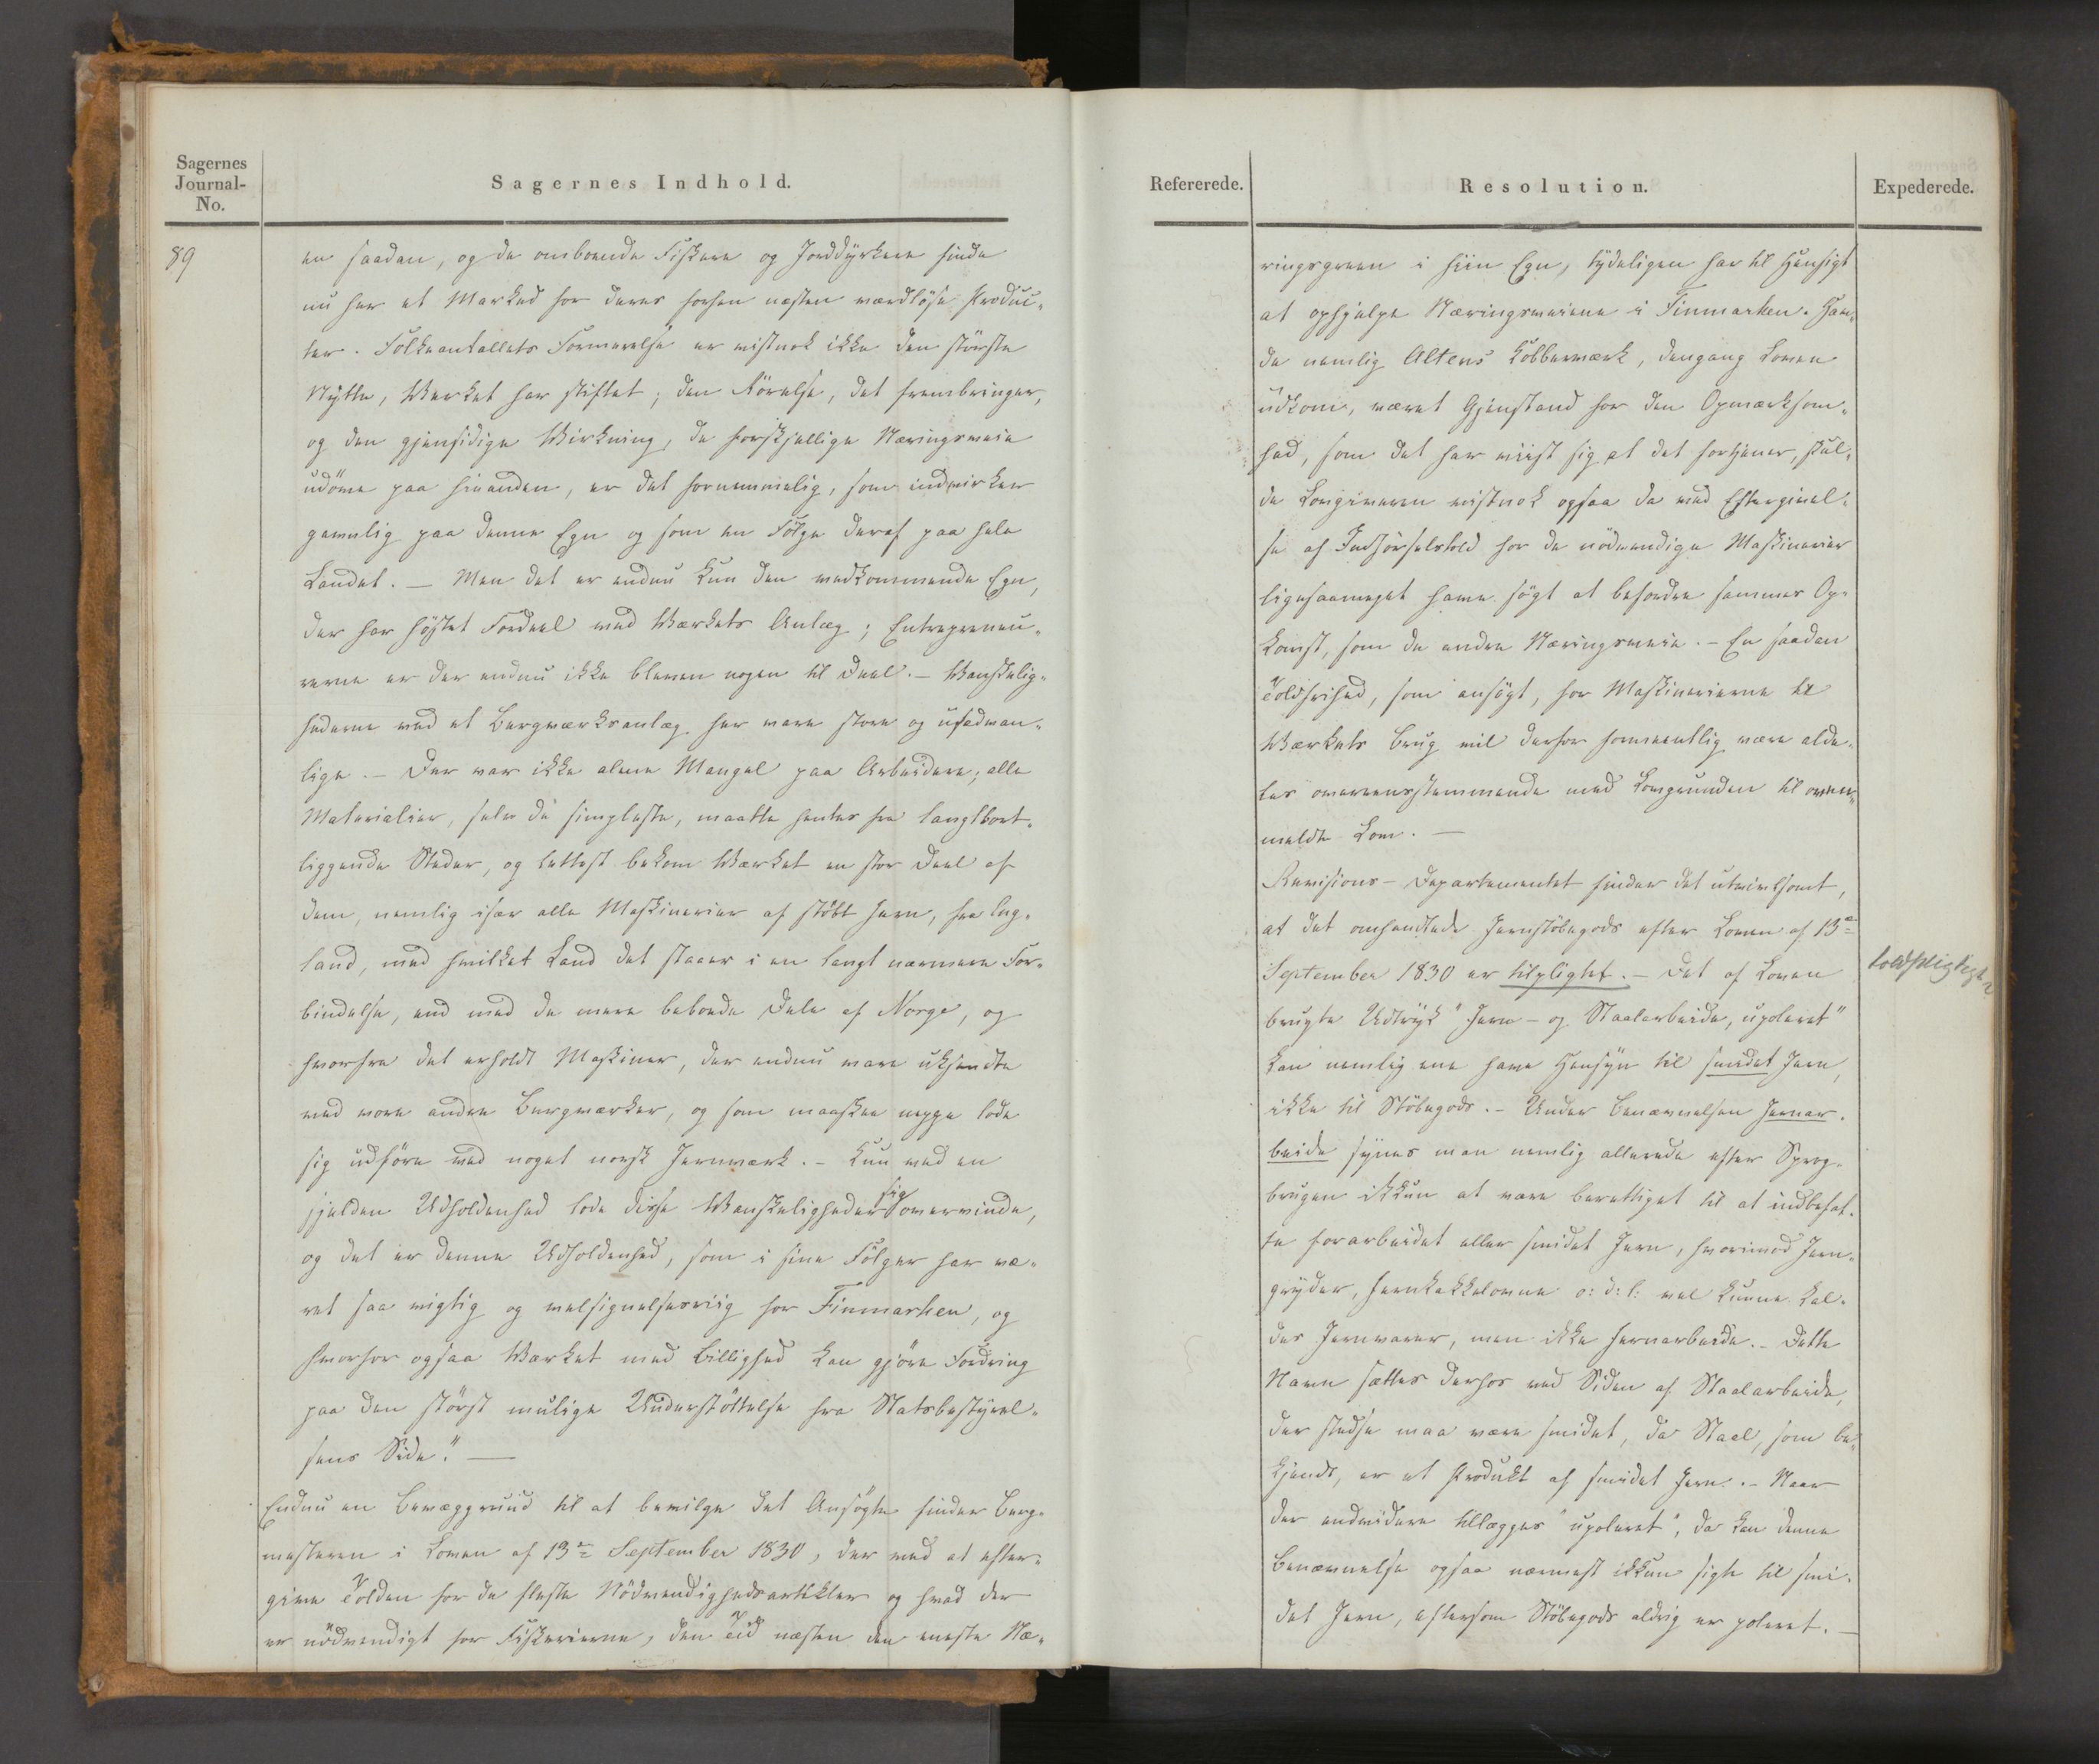 Sagernes
Journal-
No.
Sagernes Indhold.
89
en saadan, og de omboende Fiskere og Jorddyrkere finde
nu her et Marked for deres forhen næsten værdløse Produc-
ter. Folkeantallets Formerelse er vistnok ikke den største
Nytte, Værket har stiftet; den Rørelse, det frembringer,
og den gjensidige Virkning, de forskjellige Næringsveie
udøve paa hinanden, er det fornemmelig, som indvirker
gavnlig paa denne Egn og som en Følge deraf paa hele
Landet. — Men det er endnu kun den vedkommende Egn,
der har høstet Fordeel ved Værkets Anlæg; Entrepreneu-
rerne er der endnu ikke bleven nogen til Deel. — Vanskelig-
hederne ved et Bergværksanlæg her vare store og usædvan-
lige. — Der var ikke alene Mangel paa Arbeidere; alle
Materialier, selv de simpleste, maatte hentes fra langtbort-
liggende Steder, og lettest bekom Værket en stor Deel af
dem, nemlig især alle Maskinerier af støbt Jern, fra Eng-
land, med hvilket Land det staaer i en langt nærmere For-
bindelse, end med de mere beboede Dele af Norge, og
hvorfra det erholdt Maskiner, der endnu vare ukjendte
ved vore andre Bergværker, og som maaskee neppe lode
sig udføre ved noget norsk Jernværk. — Kun ved en
sjelden Udholdenhed lode disse Vanskeligheder sig overvinde,
og det er denne Udholdenhed, som i sine Følger har væ-
ret saa vigtig og velsignelsesriig for Finmarken, og
hvorfor ogsaa Værket med Billighed kan gjøre Fordring
paa den størst mulige Understøttelse fra Statsbestyrel-
sens Side." —
Endnu en Bevæggrund til at bevilge det Ansøgte finder Berg-
mesteren i Loven af 13de September 1830, der ved at efter-
give Tolden for de fleste Nødvendighedsartikler og hvad der
er nødvendigt for Fiskerierne, den Tid næsten den eneste Næ-
Refererede.
Resolution.
Expederede.
ringsgreen i hiin Egn, tydeligen har til Hensigt
at ophjelpe Næringsveiene i Finmarken. Hav-
de nemlig Altens Kobberværk, dengang Loven
udkom, været Gjenstand for den Opmærksom-
hed, som det har viist sig at det fortjener, skul-
de Lovgiveren vistnok ogsaa da ved Eftergivel-
se af Indførselstold for de nødvendige Maskinerier
ligesaameget have søgt at befordre sammes Op-
komst, som de andre Næringsveie. — En saadan
Toldfrihed, som ansøgt, for Maskinerierne til
Værkets Brug vil derfor formeentlig være alde-
les overeensstemmende med Lovgrunden til oven-
meldte Lov. —
Revisions-Departementet finder det utvivlsomt,
at det omhandlede Jernstøbegods efter Loven af 13de
September 1830 er tilpligtet. — Det af Loven
toldpligtigt
brugte Udtryk "Jern- og Staalarbeide, upoleret"
kan nemlig ene have Hensyn til smedet Jern,
ikke til Støbegods. — Under Benævnelsen Jernar-
beide synes man nemlig allerede efter Sprog-
brugen ikkun at være berettiget til at indbefat-
te forarbeidet eller smidet Jern, hvorimod Jern-
gryder, Jernkakkelovne o: d: l: vel kunne kal-
des Jernvarer, men ikke Jernarbeide. — Dette
Navn sættes derhos ved Siden af Staalarbeide,
der stedse maa være smidet, da Staal, som be-
kjendt, er et Produkt af smidet Jern. — Naar
der endvidere tillægges "upoleret", da kan denne
Benævnelse ogsaa nærmest ikkun sigte til smi-
det Jern, eftersom Støbegods aldrig er poleret. —